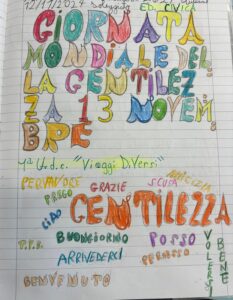 12/11/2024
ED. CIVICA
GIORNATA
MONDIALE DEL
LA GENTILEZ
ZA 13 NOVEM
BRE
1ª U.d.c. "Viaggi Diversi"
PER FAVORE
GRAZIE
SCUSA
AMICIZIA
PREGO
CIAO
GENTILEZZA
T.V.B.
BUONGIORNO
POSSO
VOLERSI BENE
ARRIVEDERCI
PERMESSO
BENVENUTO